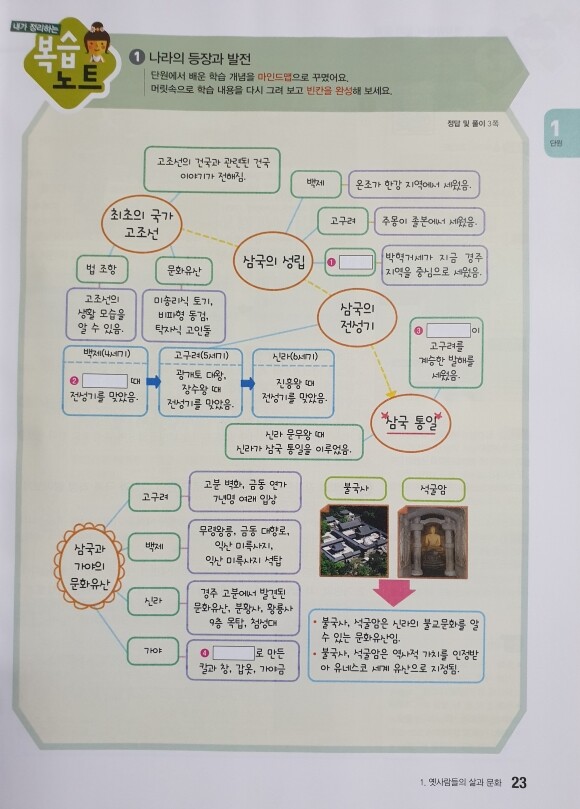 내가 정리하는
복습
노트
1 나라의 등장과 발전
단원에서 배운 학습 개념을 마인드맵으로 꾸몄어요.
머릿속으로 학습 내용을 다시 그려 보고 빈칸을 완성해 보세요.
정답 및 풀이 3쪽
1
단원
고조선의 건국과 관련된 건국
이야기가 전해짐.
최초의 국가
고조선
법 조항
고조선의
생활 모습을
알 수 있음.
문화유산
미송리식 토기,
비파형 동검,
탁자식 고인돌
삼국의 성립
백제
온조가 한강 지역에서 세웠음.
고구려
주몽이 졸본에서 세웠음.
1
박혁거세가 지금 경주
지역을 중심으로 세웠음.
삼국의
전성기
백제(4세기)
2 때
전성기를 맞았음.
고구려(5세기)
광개토 대왕,
장수왕 때
전성기를 맞았음.
신라(6세기)
진흥왕 때
전성기를 맞았음.
3 이
고구려를
계승한 발해를
세웠음.
삼국 통일
신라 문무왕 때
신라가 삼국 통일을 이루었음.
삼국과
가야의
문화유산
고구려
고분 벽화, 금동 연가
7년명 여래 입상
백제
무령왕릉, 금동 대향로,
익산 미륵사지,
익산 미륵사지 석탑
신라
경주 고분에서 발견된
문화유산, 분황사, 황룡사
9층 목탑, 첨성대
가야
4 로 만든
칼과 창, 갑옷, 가야금
불국사
석굴암
• 불국사, 석굴암은 신라의 불교문화를 알
수 있는 문화유산임.
• 불국사, 석굴암은 역사적 가치를 인정받
아 유네스코 세계 유산으로 지정됨.
1. 옛사람들의 삶과 문화 23